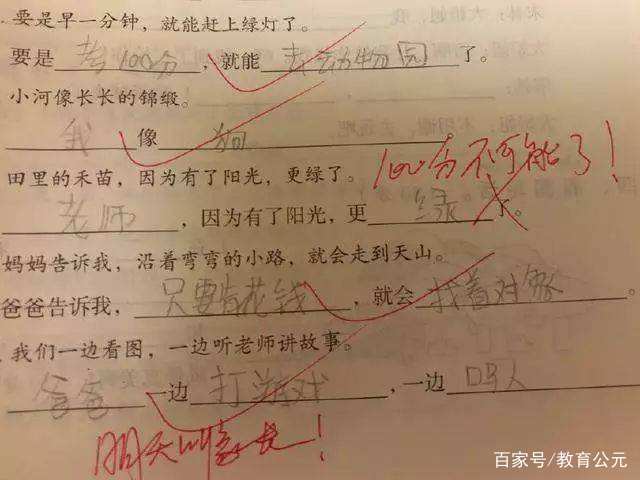 要是早一分钟，就能赶上绿灯了。
要是考100分，就能去动物园了。
小河像长长的锦缎。
我像狗
100分不可能了！
田里的禾苗，因为有了阳光，更绿了。
老师，因为有了阳光，更绿了。
妈妈告诉我，沿着弯弯的小路，就会走到天山。
爸爸告诉我，只要肯花钱，就会找着对象。
我们一边看图，一边听老师讲故事。
爸爸一边打游戏，一边骂人
明天叫家长！
百家号/教育公元